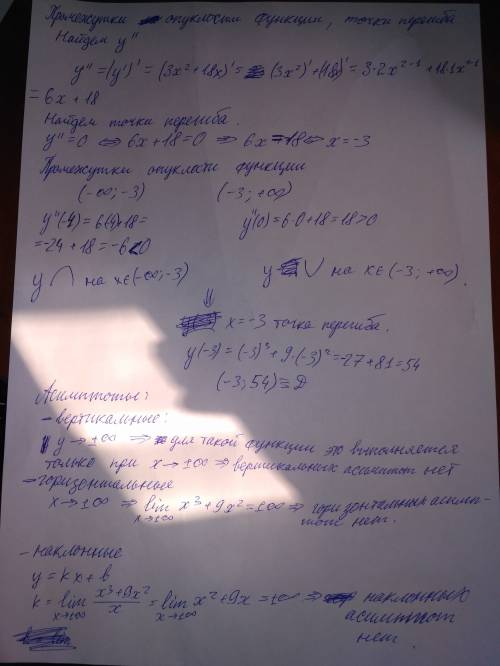 Промежутки выпуклости функции, точки перегиба
Найдем y''
y'' = (y')' = (3x² + 18x)' = (3x²)' + (18x)' = 3·2x²⁻¹ + 18·1x¹⁻¹
= 6x + 18
Найдем точки перегиба.
y''=0 ⇔ 6x+18=0 ⇒ 6x=-18 ⇔ x=-3
Промежутки выпуклости функции
(-∞; -3) (-3; +∞)
y''(-4) = 6(-4)+18= y''(0)=6·0+18=18>0
=-24+18=-6<0
y ∩ на x∈(-∞;-3) y ∪ на x∈(-3; +∞).
⇓
x=-3 точка перегиба.
y(-3)=(-3)³+9·(-3)²=-27+81=54
(-3; 54) ≡ D
Асимптоты:
- вертикальные:
y→±∞ ⇒ для такой функции это выполняется
только при x→±∞ ⇒ вертикальных асимптот нет
- горизонтальные
x→±∞ ⇒ lim x→±∞ x³+9x² = ±∞ ⇒ горизонтальных асимп-
тот нет.
- наклонные
y = kx + b
k = lim x→±∞ (x³+9x²)/x = lim x→±∞ x²+9x = ±∞ ⇒ наклонных
асимптот
нет.